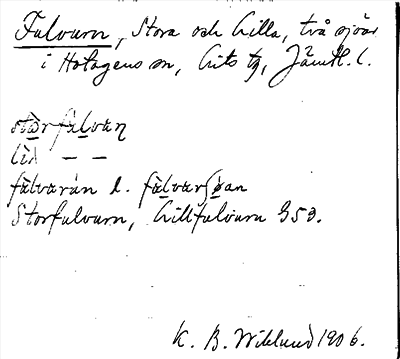 Fulvurn, Stora och Lilla, två sjöar
i Hotagens sn, Lits tg, Jämtl. l.
stọ̀rfúlvạn
lìl — —
fúlvarán l. fúlvarsjöan
Storfulvurn, Lillfulvurn G53.
K. B. Wiklund 1906.